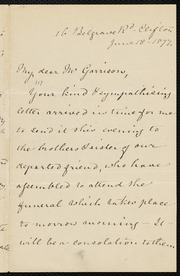 16 Belgrave Rd. Clifton
June 18. 1877.
My dear Mr Garrison,
Your kind & sympathising
letter arrived in time for me
to send it this evening to
the brothers & sister of our
departed friend, who have
assembled to attend the
funeral which takes place
to morrow morning – It
will be a consolation to them